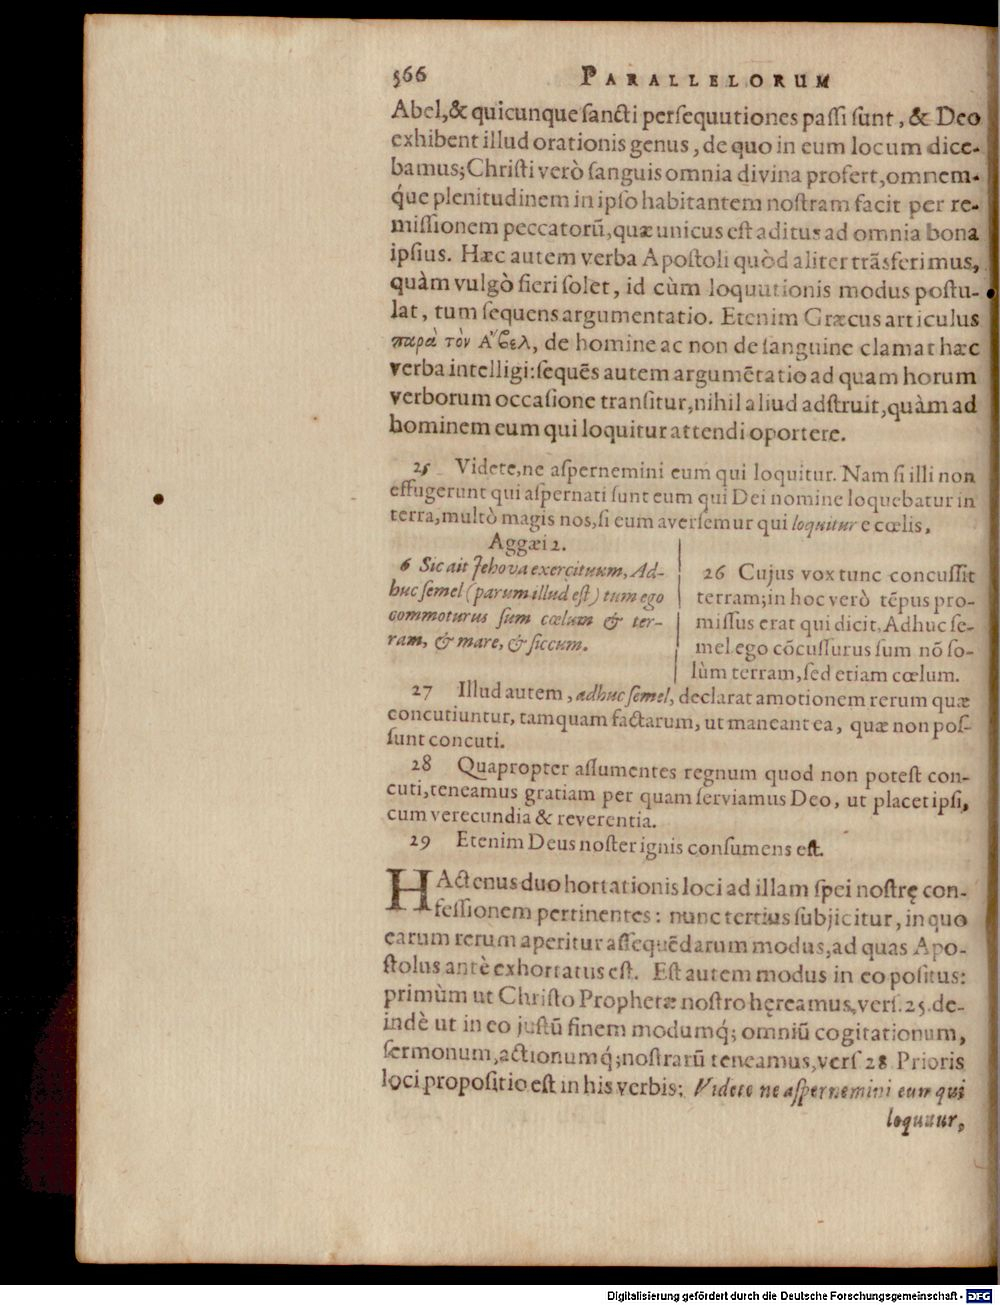 566 PARALLELORUM
Abel, & quicunque sancti persequutiones passi sunt, & Deo
exhibent illud orationis genus, de quo in eum locum dice-
bamus; Christi verò sanguis omnia divina profert, omnem-
q́ue plenitudinem in ipso habitantem nostram facit per re-
missionem peccatorū, quæ unicus est aditus ad omnia bona
ipsius. Hæc autem verba Apostoli quòd aliter trãsferimus,
quàm vulgò fieri solet, id cùm loquutionis modus postu-
lat, tum sequens argumentatio. Etenim Græcus articulus
παρὰ τὸν Ἄβελ, de homine ac non de sanguine clamat hæc
verba intelligi: sequẽs autem argumẽtatio ad quam horum
verborum occasione transitur, nihil aliud adstruit, quàm ad
hominem eum qui loquitur attendi oportere.
25 Videte, ne aspernemini eum qui loquitur. Nam si illi non
effugerunt qui aspernati sunt eum qui Dei nomine loquebatur in
terra, multò magis nos, si eum aversemur qui loquitur e cœlis,
Aggæi 2.
6 Sic ait Jehova exercituum, Ad-
huc semel (parum illud est) tum ego
commoturus sum cœlum & ter-
ram, & mare, & siccum.
26 Cujus vox tunc concussit
terram; in hoc verò tẽpus pro-
missus erat qui dicit, Adhuc se-
mel ego cõcussurus sum nõ so-
lùm terram, sed etiam cœlum.
27 Illud autem, adhuc semel, declarat amotionem rerum quæ
concutiuntur, tamquam factarum, ut maneant ea, quæ non pos-
sunt concuti.
28 Quapropter assumentes regnum quod non potest con-
cuti, teneamus gratiam per quam serviamus Deo, ut placet ipsi,
cum verecundia & reverentia.
29 Etenim Deus noster ignis consumens est.
HActenus duo hortationis loci ad illam spei nostrę con-
fessionem pertinentes: nunc tertius subjicitur, in quo
earum rerum aperitur assequẽdarum modus, ad quas Apo-
stolus antè exhortatus est. Est autem modus in eo positus:
primùm ut Christo Prophetæ nostro hęreamus, vers. 25. de-
indè ut in eo justū finem modumq́; omniū cogitationum,
sermonum, actionumq́; nostrarū teneamus, vers 28 Prioris
loci propositio est in his verbis: Videte ne aspernemini eum qui
loquitur,
Digitalisierung gefördert durch die Deutsche Forschungsgemeinschaft - DFG